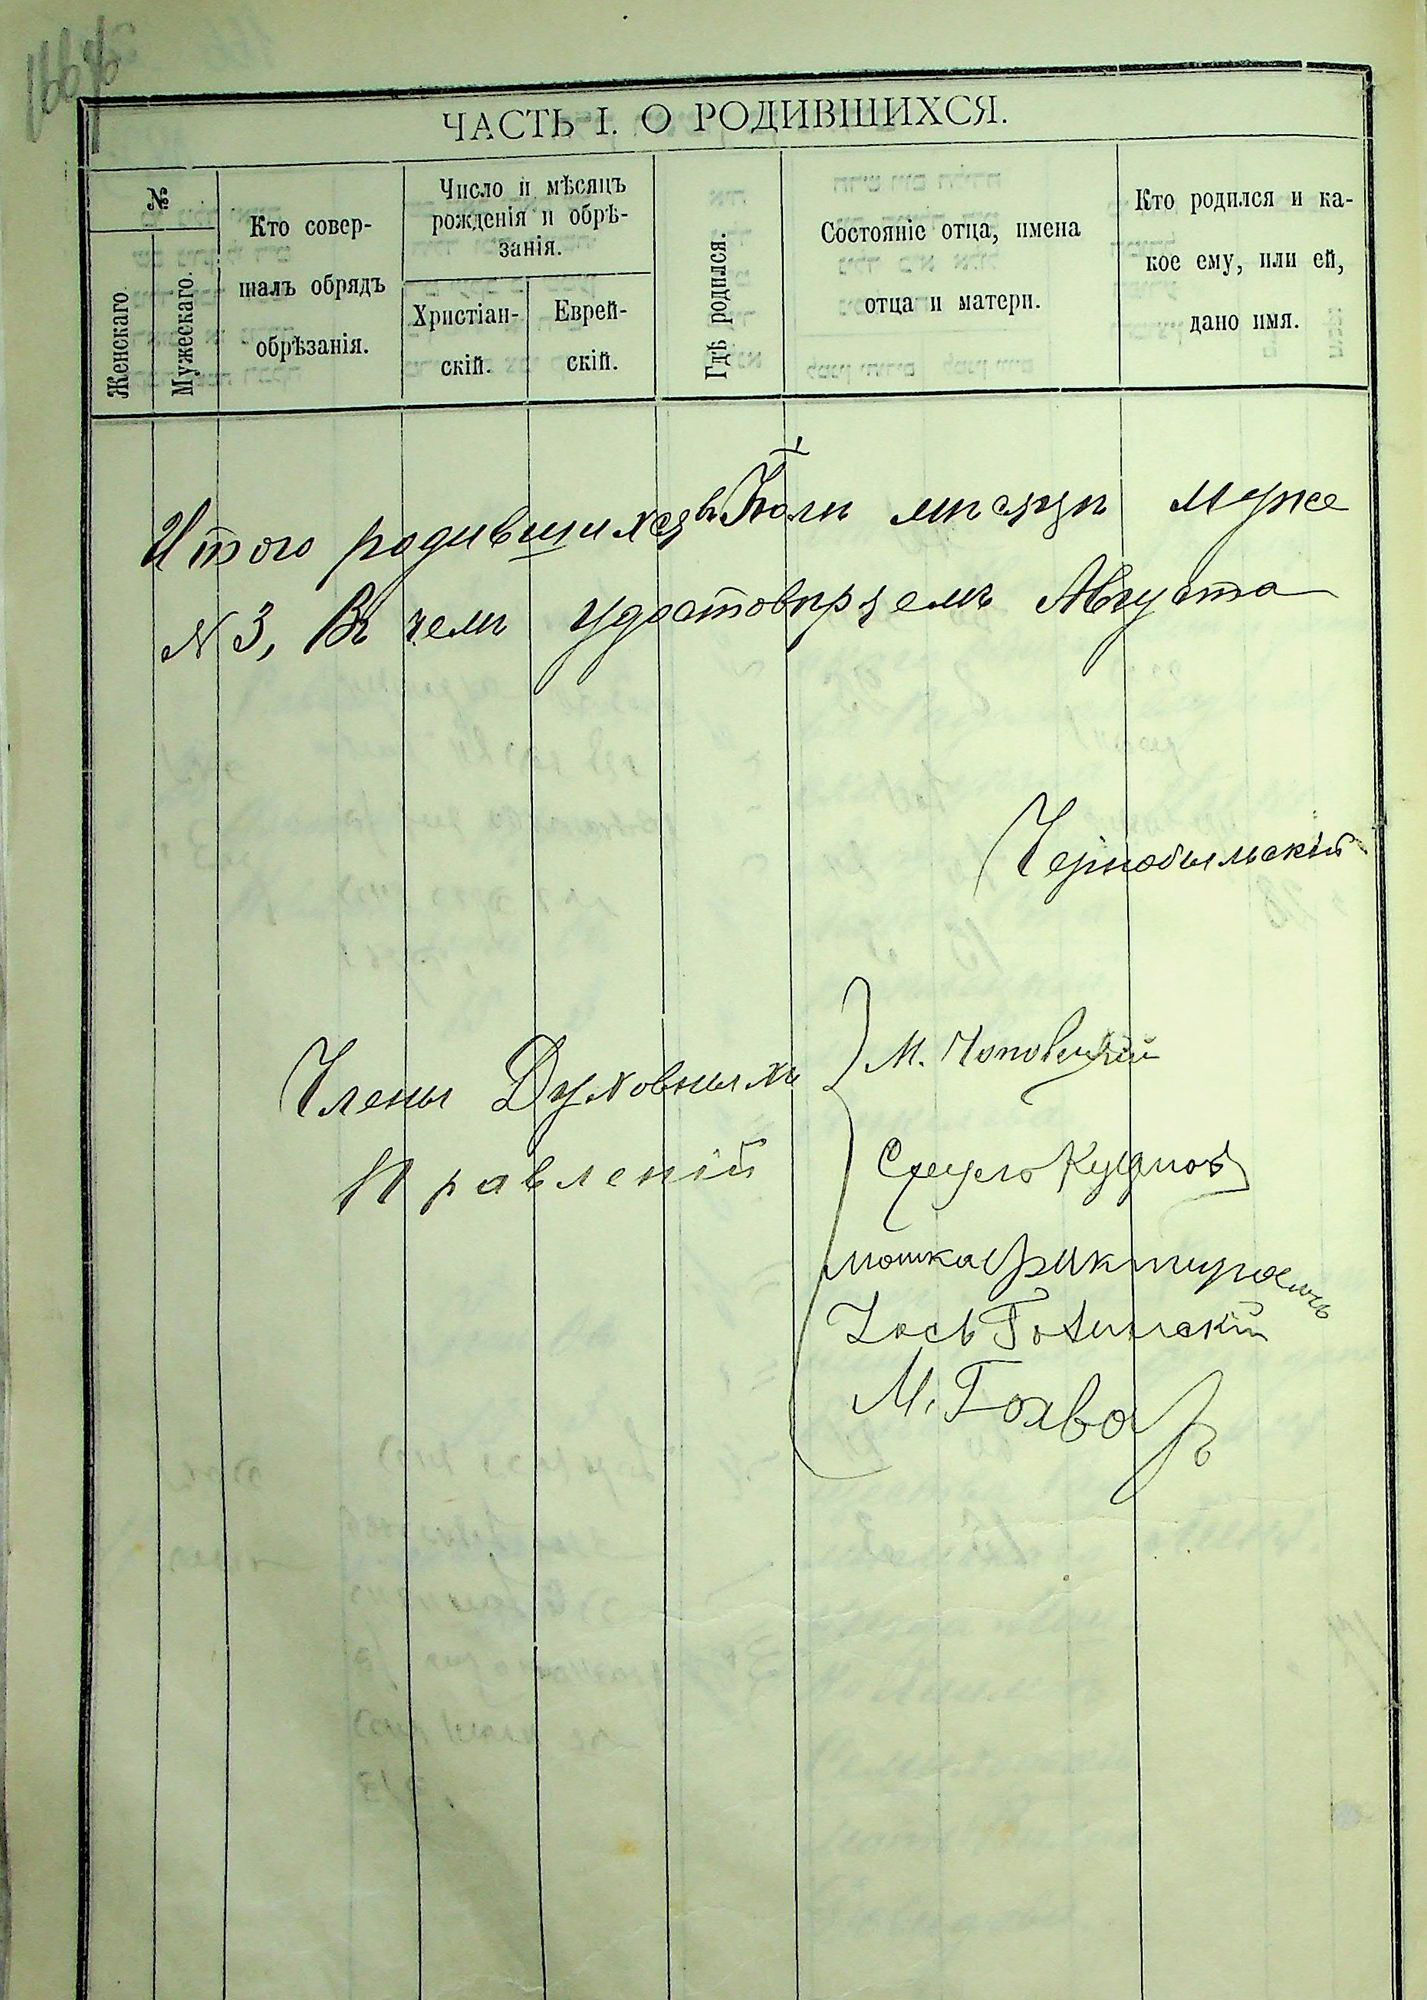 ЧАСТЬ I. О РОДИВШИХСЯ.
№
Женскаго.
Мужескаго.
Кто совер-
шалъ обрядъ
обрѣзанія.
Число и мѣсяцъ
рожденія и обрѣ-
занія.
Христіан-
скій.
Еврей-
скій.
Гдѣ родился.
Состояніе отца, имена
отца и матери.
Кто родился и ка-
кое ему, или ей,
дано имя.
Итого родившихся въ Іюлѣ мѣсяцѣ муже
N 3, Въ чемъ удостовѣряемъ Августа
Чернобыльскій
Члены Духовныхъ
Правленій
М. Чоповецкій
мошка
Гохва